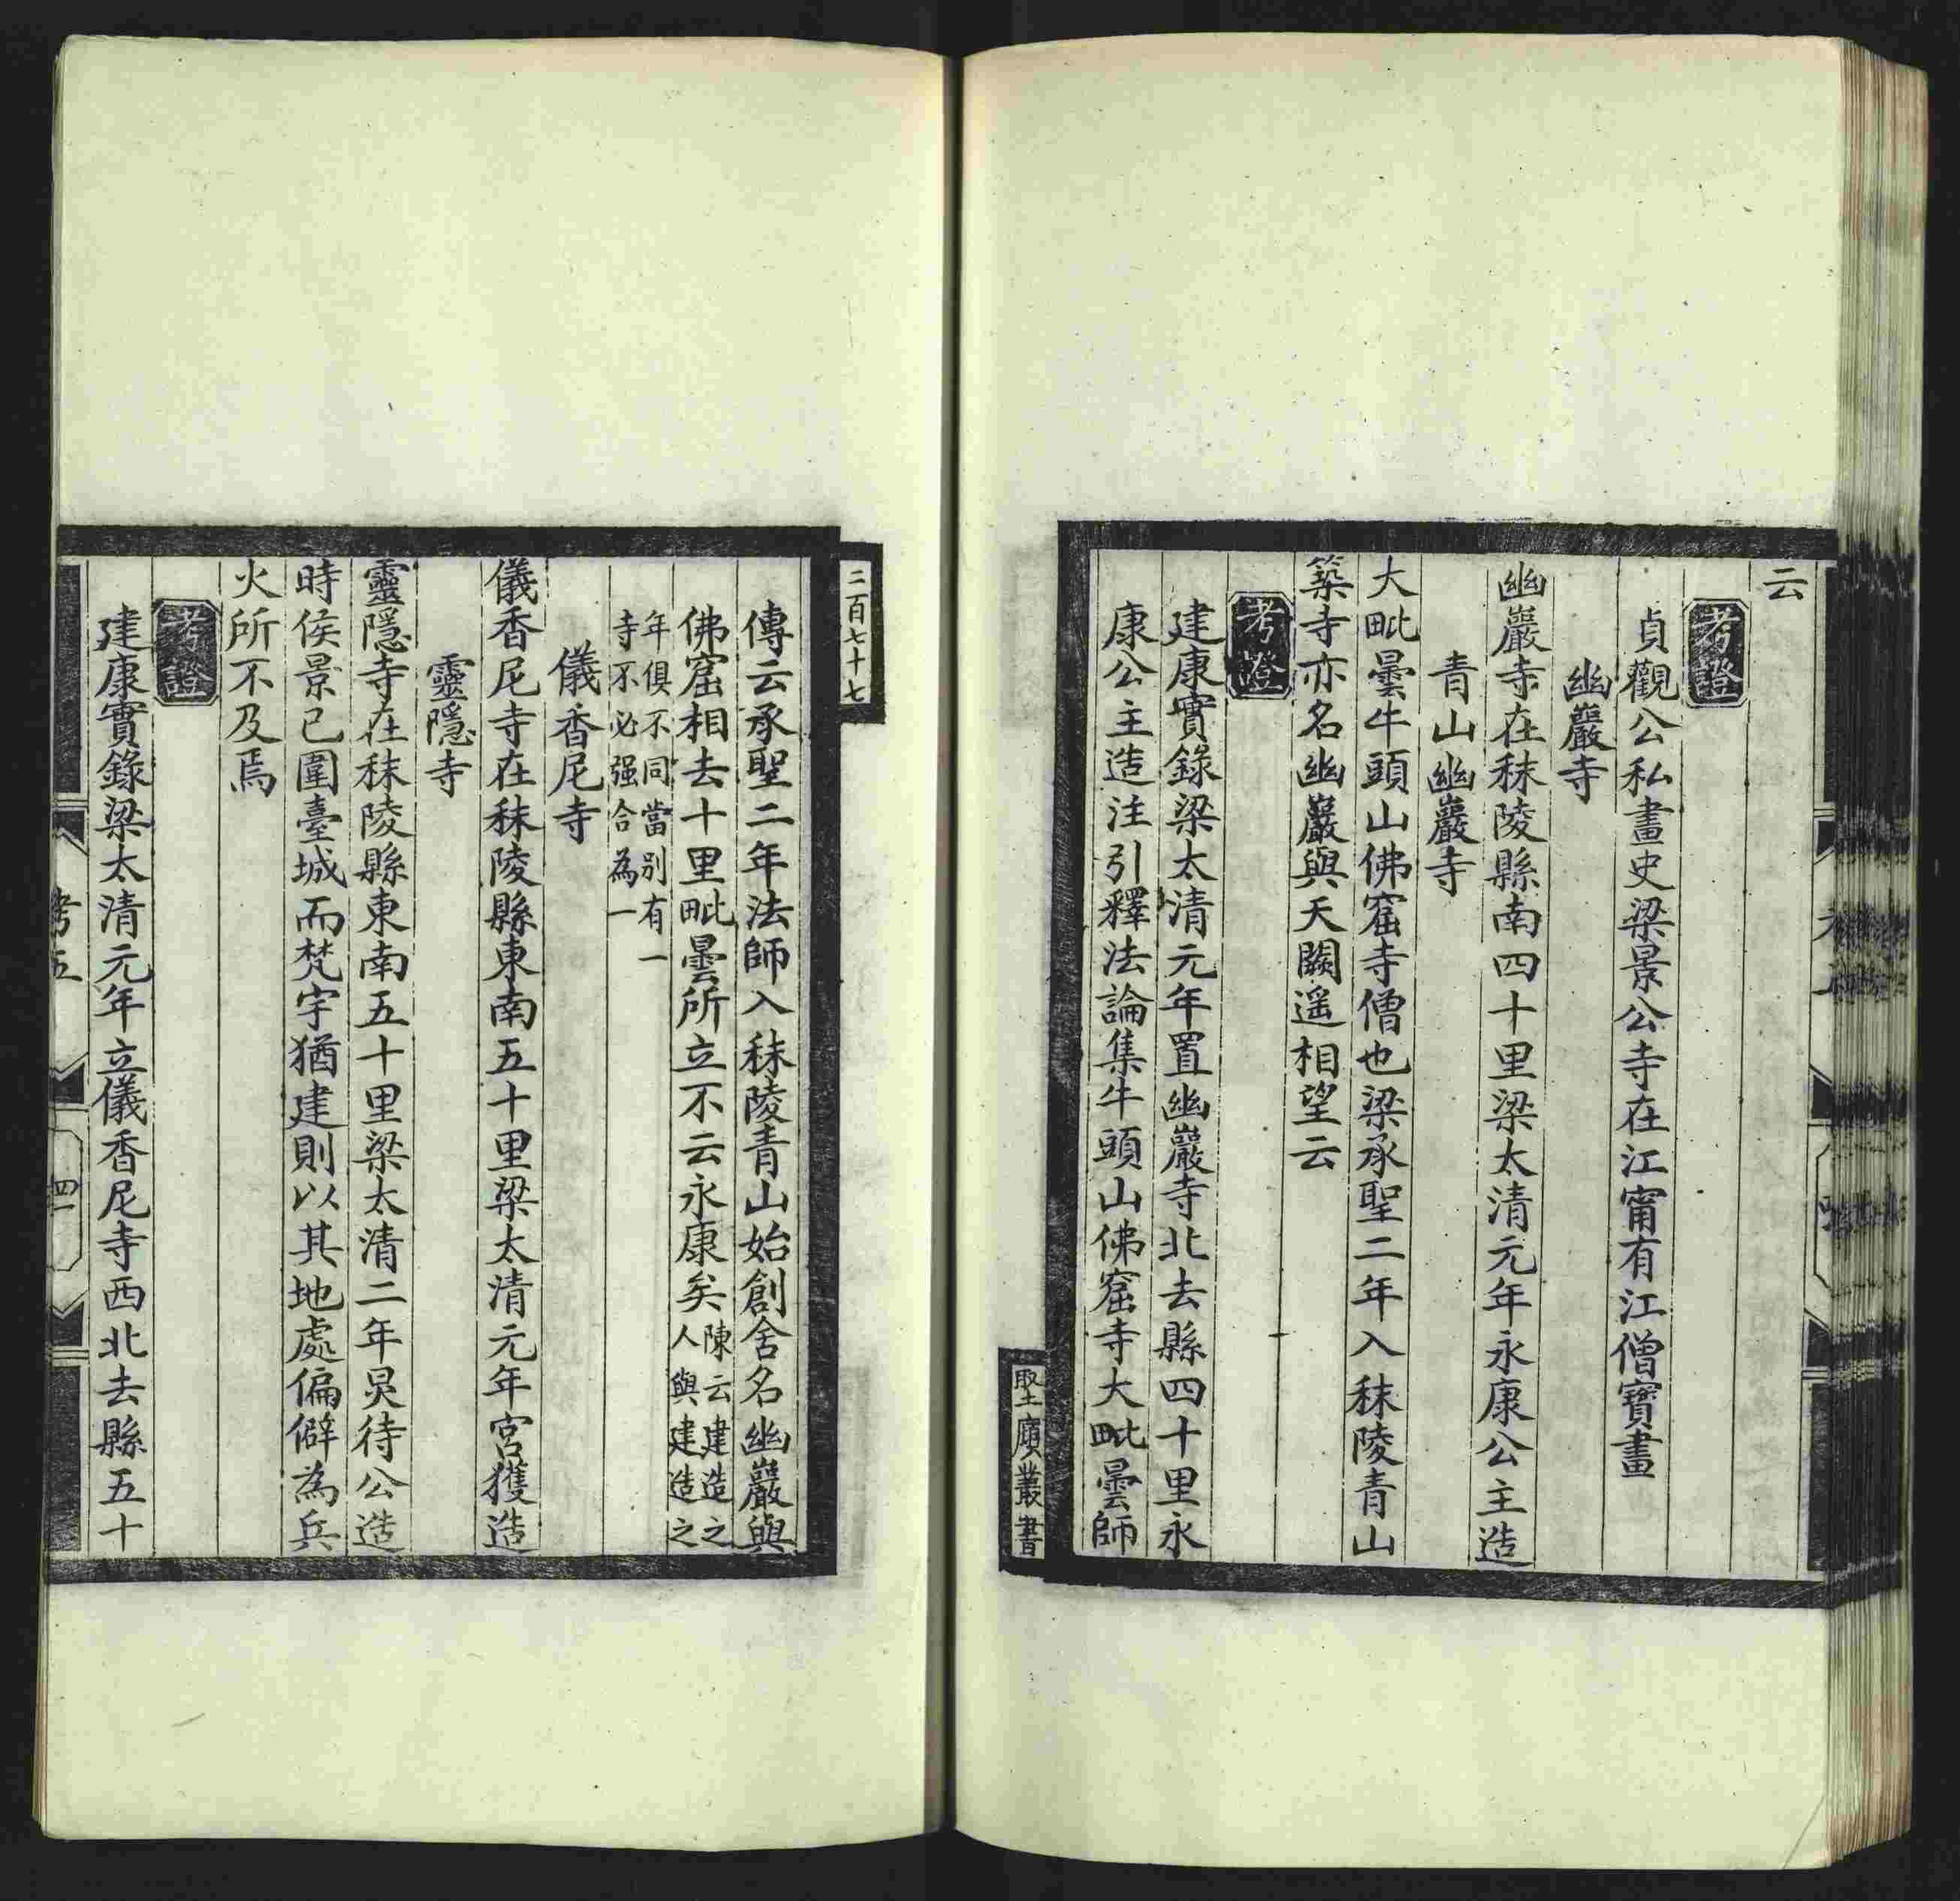 云
考證
貞觀公私畫史梁景公寺在江甯有江僧寶畫
幽巖寺
幽巖寺在秣陵縣南四十里梁太清元年永康公主造
青山幽巖寺
大毗曇牛頭山佛窟寺僧也梁承聖二年入秣陵青山
築寺亦名幽巖與天闕遥相望云
考證
建康實錄梁太清元年置幽巖寺北去縣四十里永
康公主造注引釋法論集牛頭山佛窟寺大毗曇師
埾廎叢書
二百七十七
傳云承聖二年法師入秣陵青山始創舍名幽巖與
佛窟相去十里毗曇所立不云永康矣陳云建造之
人與建造之
年俱不同當别有一
寺不必强合為一
儀香尼寺
儀香尼寺在秣陵縣東南五十里梁太清元年宮獲造
靈隱寺
靈隱寺在秣陵縣東南五十里梁太清二年炅待公造
時侯景已圍臺城而梵宇猶建則以其地處偏僻為兵
火所不及焉
考證
建康實錄梁太清元年立儀香尼寺西北去縣五十
考五
四一